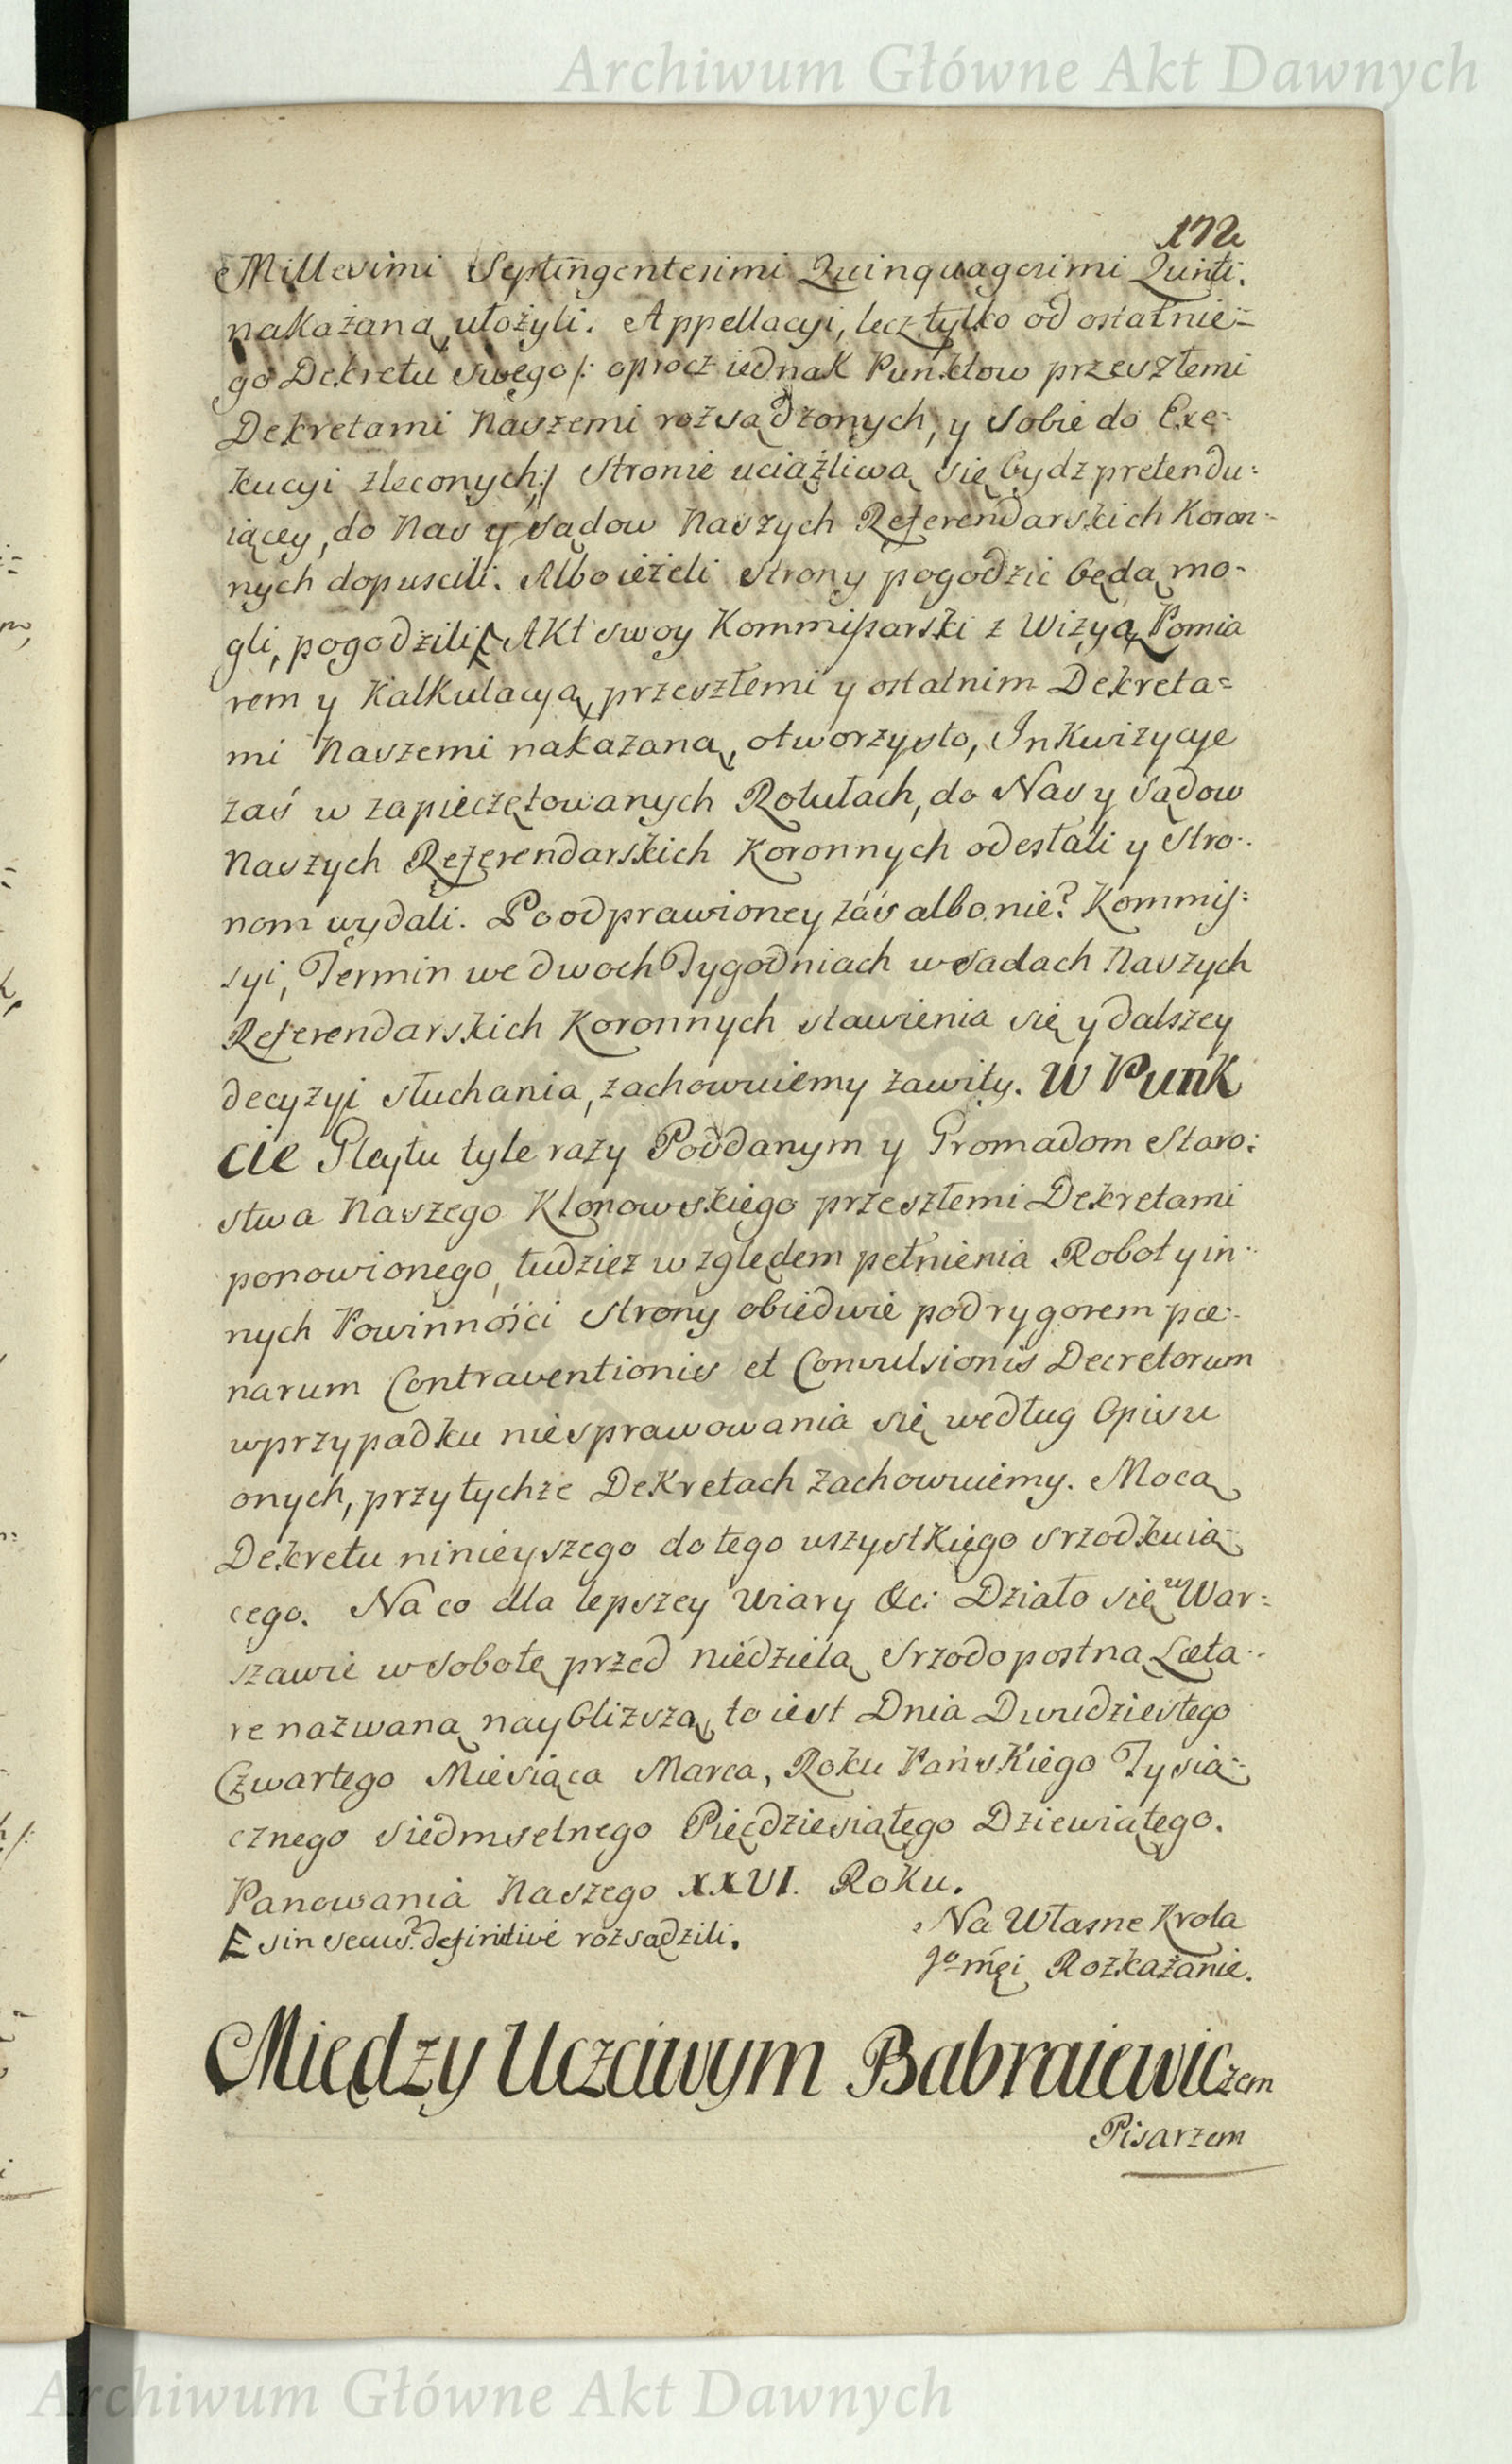 Archiwum Główne Akt Dawnych
172
Millesimi Septingentesimi Quinquagesimi Quinti.
nakażaną ułożyli. Appellacyi, lecz tylko od ostatnie=
go Dekretu swego /: oprocz iednak Punktow przeszłemi
Dekretami Naszemi rozsądzonych, y sobie do Exe=
kucyi zleconych :/ stronie uciążliwą się bydz pretendu:
iącey, do Nas y Sądow Naszych Referendarskich Koron=
nych dopuscili. Albo ieżeli strony pogodzic będą mo=
gli, pogodzili E Akt swoy Kommissarski z Wizyą Pomia
rem y Kalkulacyą przeszłemi y ostatnim Dekreta=
mi Naszemi nakazaną, otworzysto, Inkwizycye
zaś w zapieczętowanych Rotułach, do Nas y Sądow
Naszych Referendarskich Koronnych odesłali y stro=
nom wydali. Po odprawioney záś albo nie? Kommis:
syi, Termin we dwoch Tygodniach w Sadach Naszych
Referendarskich Koronnych stawienia się y dalszey
decyzyi słuchania, zachowuiemy zawity. W Punk
cie Gleytu tyle razy Poddanym y Gromadom Staro:
stwa Naszego Klonowskiego przeszłemi Dekretami
ponowionego, tudziez względem pełnienia Robot y in=
nych Powinności strony obiedwie pod rygorem pæ=
narum Contraventionis et Convulsionis Decretorum
w przypadku niesprawowania się według Opisu
onych, przy tychże Dekretach zachowuiemy. Mocą
Dekretu ninieyszego do tego wszystkiego srzodkuią=
cego. Na co dla lepszey wiary &c: Działo się w War=
szawie w Sobotę przed Niedzielą Srzodopostną Læta=
re nazwaną naybliższą, to iest Dnia Dwudziestego
Czwartego Miesiąca Marca, Roku Pańskiego Tysią=
cznego Siedmsetnego Pięcdziesiątego Dziewiątego.
Panowania Naszego XXVI. Roku.
E sin secus? definitive rozsądzili.
Na Własne Krola
Jo mci Rozkażanie.
Między Uczciwym Babraiewiczem
Pisarzem
Archiwum Główne Akt Dawnych